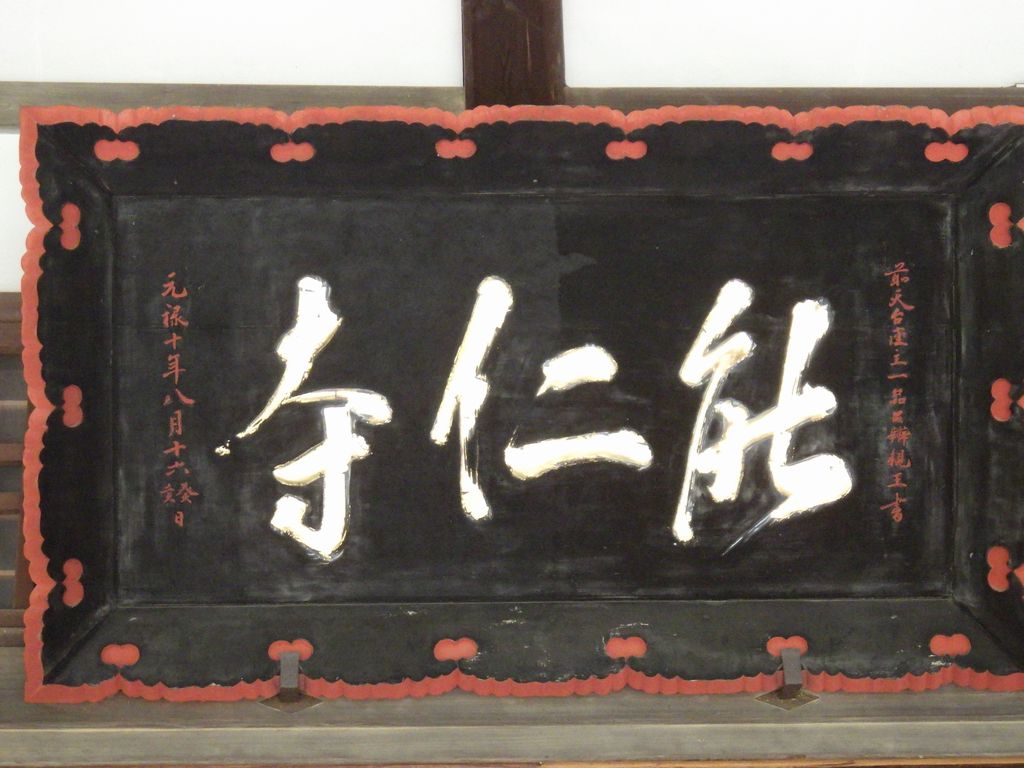 前天台座主一品公辨親王書
能仁寺
元禄十年八月十六癸亥日